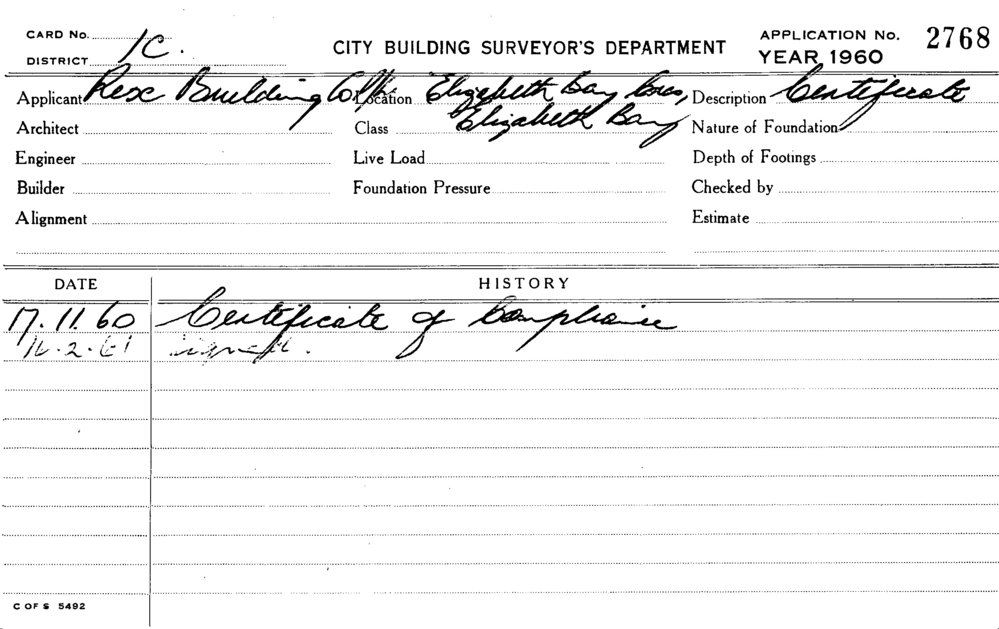 CARD No. 1C.
DISTRICT
CITY BUILDING SURVEYOR'S DEPARTMENT
APPLICATION No. 2768
YEAR 1960
Applicant Rex Building Co Location Elizabeth Bay Cres, Description Certificate
Architect Class Elizabeth Bay Nature of Foundation
Engineer Live Load Depth of Footings
Builder Foundation Pressure Checked by
Alignment Estimate
DATE HISTORY
17.11.60 Certificate of Compliance
.2.61
C OF S 5492